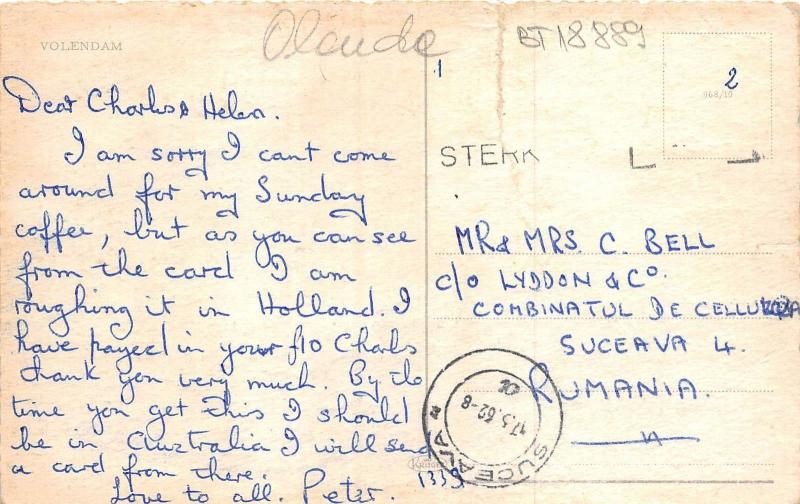 VOLENDAM
Olanda
BT 18889
1
2
968/10
Dear Charles & Helen.
I am sorry I cant come
around for my Sunday
coffee, but as you can see
from the card I am
roughing it in Holland. I
have payed in your f10 Charls
thank you very much. By the
time you get this I should
be in Australia I will send
a card from there.
Love to all. Peter.
STERK
MR & MRS. C. BELL
c/o LYDDON & Co.
COMBINATUL DE
SUCEAVA 4.
RUMANIA.
SUCEAVA
10
17.5.62-8
1339